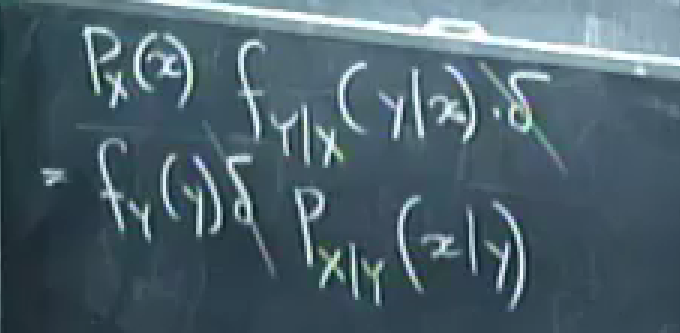 P_X(x) f_{Y|X}(y|x)·δ
= f_Y(y)δ P_{X|Y}(x|y)